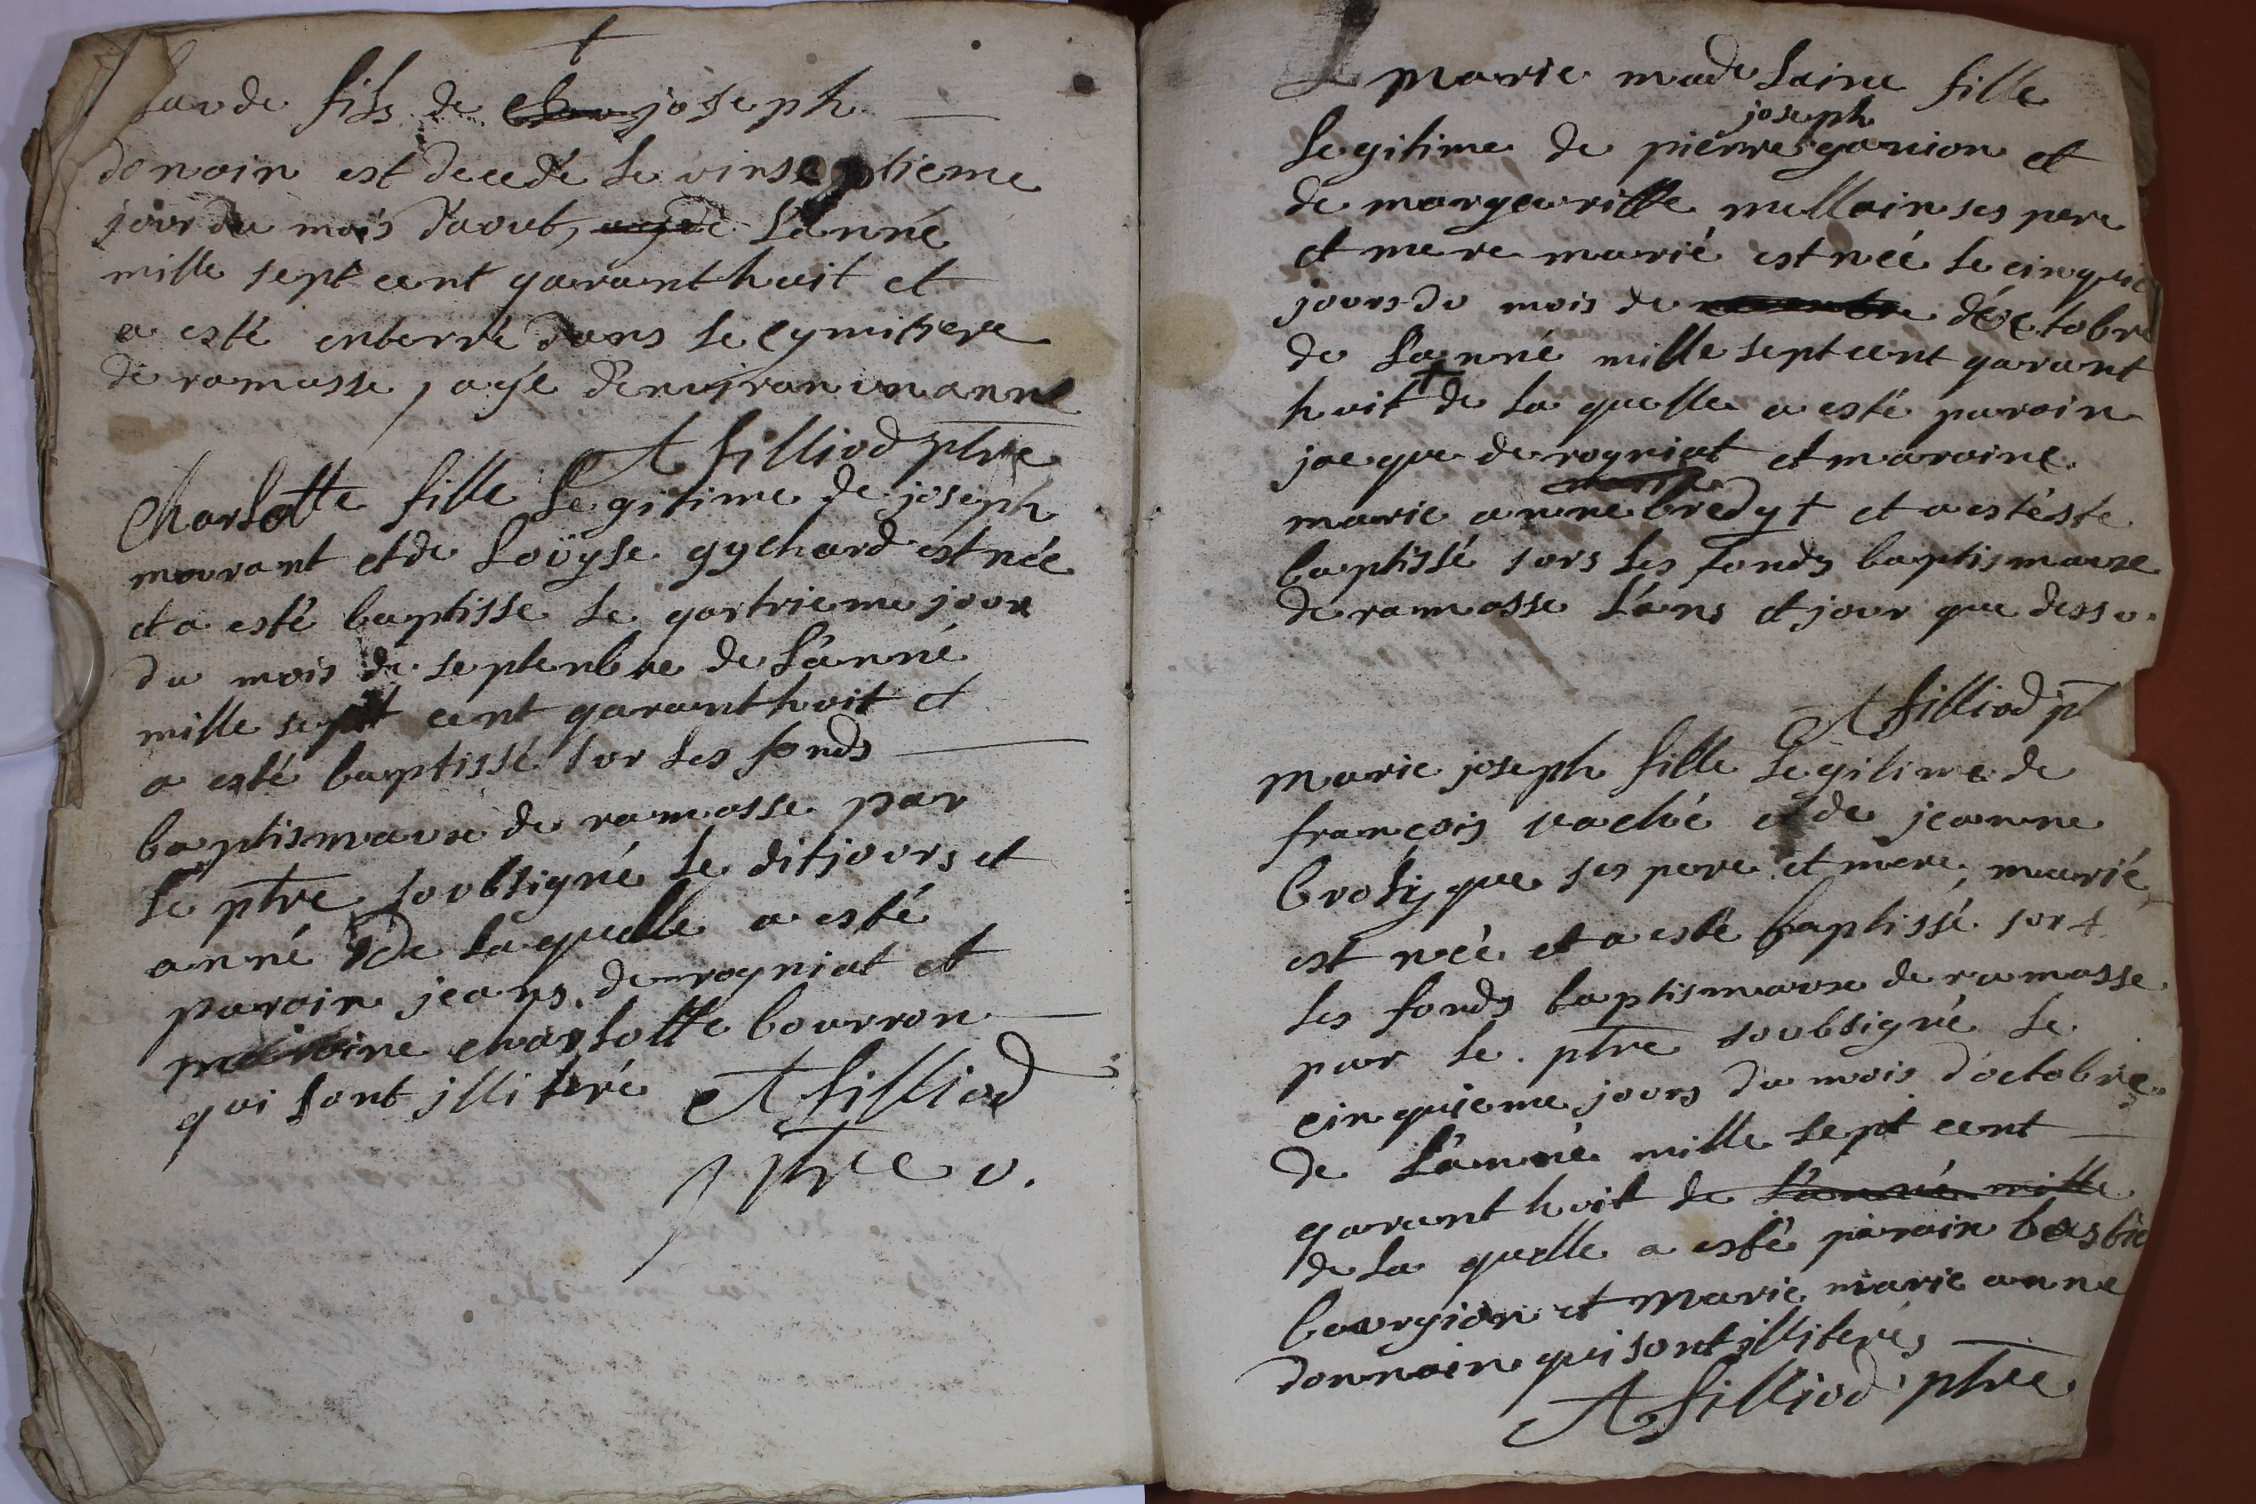 fils de joseph
donain est decedé le vinseptieme
jour du mois d'aout, L'anné
mille sept cent garanthuit et
a esté enterré dans le cymitiere
de ramasse, agé d'environ un anné
A filliod ptre
Charlotte fille Legitime de joseph
mourant et de Loüyse gychard est née
et a esté baptisse le gartrieme jour
du mois de septenbre de L'anné
mille sept cent garanthuit et
a esté baptissé sur les fonds
baptismaux de ramasse par
le ptre soubsigné le dit jours et
anné de laquelle a esté
paroin jeans derogniat et
maroine charlotte bourron
qui sont jlliteré A filliod
ptre v.
Marie madelaine fille
joseph
Legitime de pierre ganion et
de margueritte millain ses pere
et mere marié est née le cinquie
jours du mois de d'octobre
de L'anné mille sept cent garant
huit + de la quelle a esté paroin
jacque derogniat et maroine
marie anne bredy + et a estéste
baptissé surs les fonds baptismaux
de ramasse L'ans et jour que dessu
A filliod p
Marie joseph fille Legitime de
françois vaché et de jeanne
brolijque ses pere et mere, marié
est née et a esté baptissé sur +
les fonds baptismaux de ramasse
par le ptre soubsigné le
cinquieme jours du mois d'octobre
de L'anné mille sept cent
garanthuit de L'anné mille
de la quelle a esté paroin bastie
bourgion et Marie marie anne
donnain qui sont jlliterés
A filliod ptre